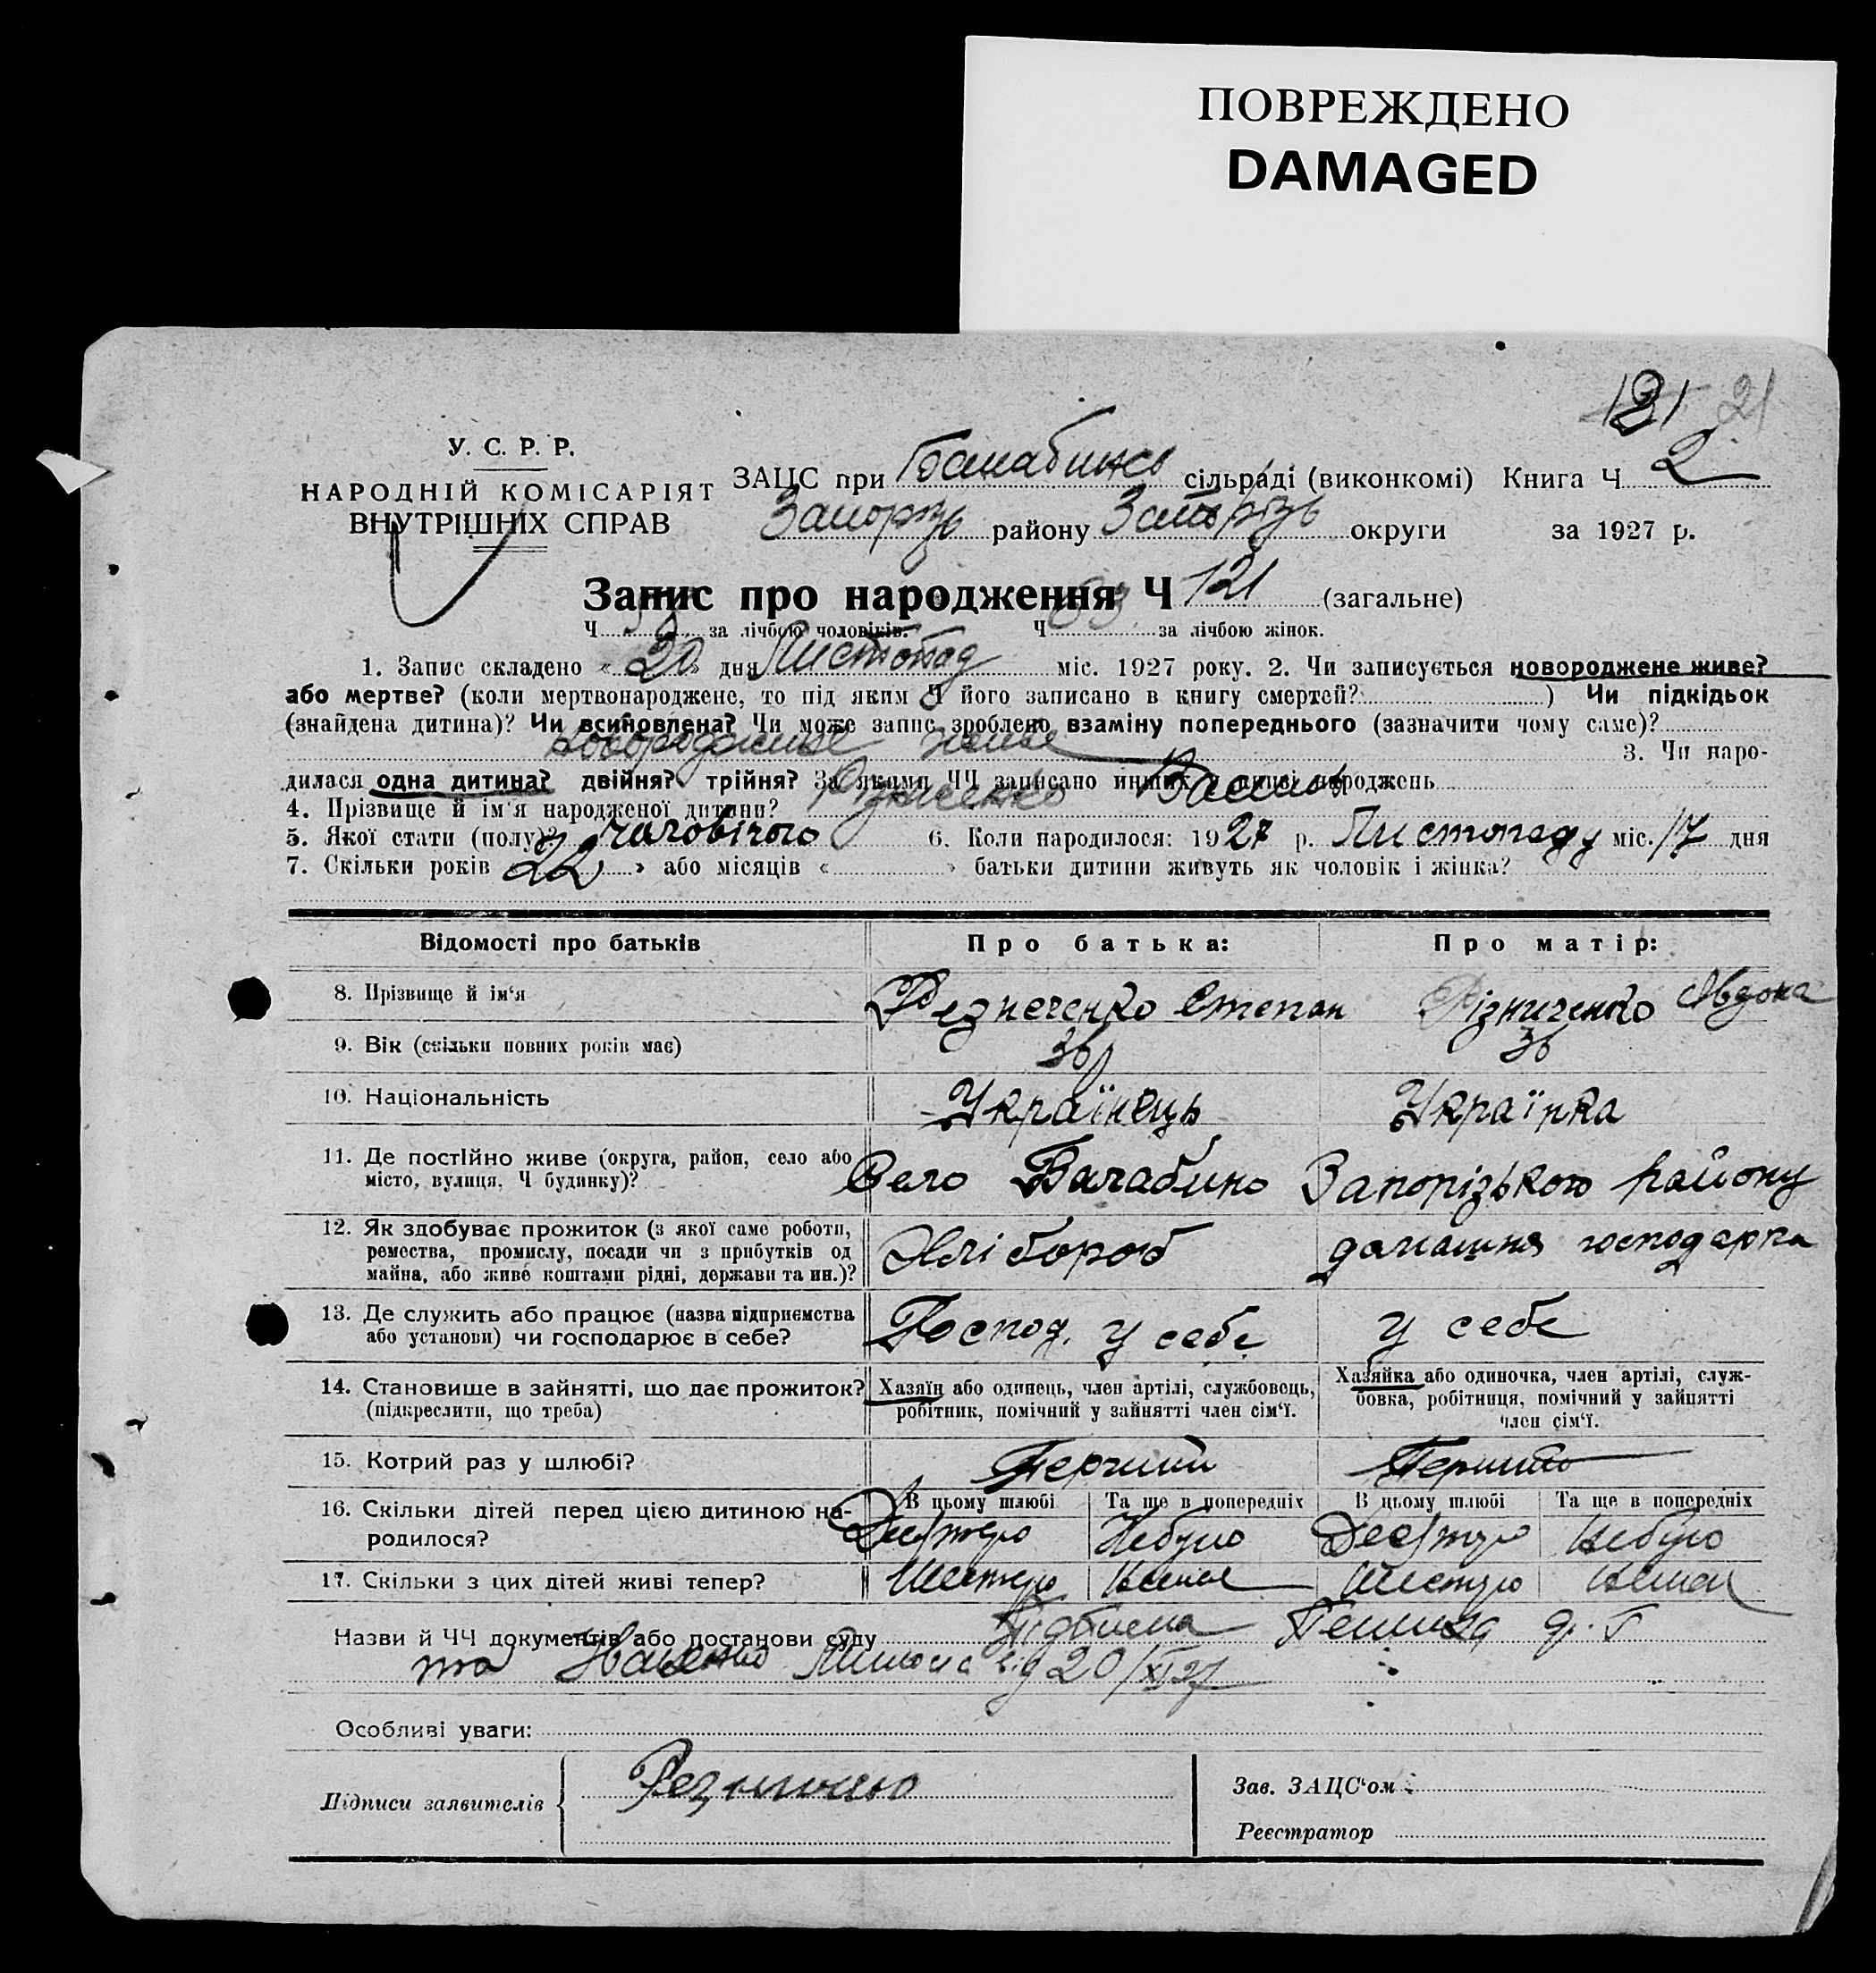 ПОВРЕЖДЕНО
DAMAGED
121 21
У. С. Р. Р.
НАРОДНІЙ КОМІСАРІЯТ
ВНУТРІШНІХ СПРАВ
ЗАЦС при сільраді (виконкомі) Книга Ч 2
Запорізь району Запорізь округи за 1927 р.
Запис про народження Ч 121 (загальне)
Ч за лічбою чоловіків. Ч 63 за лічбою жінок.
1. Запис складено « 20 » дня Листопад міс. 1927 року. 2. Чи записується новороджене живе?
або мертве? (коли мертвонароджене, то під яким Ч його записано в книгу смертей? ) Чи підкідьок
(знайдена дитина)? Чи всиновлена? Чи може запис зроблено взаміну попереднього (зазначити чому саме)?
3. Чи наро-
дилася одна дитина? двійня? трійня? За якими ЧЧ записано инших в книзі народжень
4. Прізвище й ім'я народженої дитини? Різниченко
5. Якої стати (полу)? чоловічого 6. Коли народилося: 1927 р. Листопаду міс. 17 дня
7. Скільки років 22 » або місяців « » батьки дитини живуть як чоловік і жінка?
Відомості про батьків Про батька: Про матір:
8. Прізвище й ім'я Резнеченко Степан Різниченко Явдока
9. Вік (скільки повних років має) 36 36
10. Національність Українець Українка
11. Де постійно живе (округа, район, село або
місто, вулиця, Ч будинку)? Село Балабино Запорізького району
12. Як здобуває прожиток (з якої саме роботи,
ремества, промислу, посади чи з прибутків од
майна, або живе коштами рідні, держави та ин.)? Хлібороб домашня господарка
13. Де служить або працює (назва підприємства
або установи) чи господарює в себе? Господ. у себе у себе
14. Становище в зайнятті, що дає прожиток?
(підкреслити, що треба)
Хазяїн або одинець, член артілі, службовець,
робітник, помічний у зайнятті член сім'ї.
Хазяйка або одиночка, член артілі, служ-
бовка, робітниця, помічний у зайнятті
член сім'ї.
15. Котрий раз у шлюбі? Перчий
16. Скільки дітей перед цією дитиною на-
родилося?
В цьому шлюбі Та ще в попередніх В цьому шлюбі Та ще в попередніх
Десятеро Небуло Десятеро Небуло
17. Скільки з цих дітей живі тепер? Шестеро Шестеро
Назви й ЧЧ документів або постанови суду
та від 20/XI 27
Особливі уваги:
Підписи заявителів
Зав. ЗАЦС'ом
Реєстратор